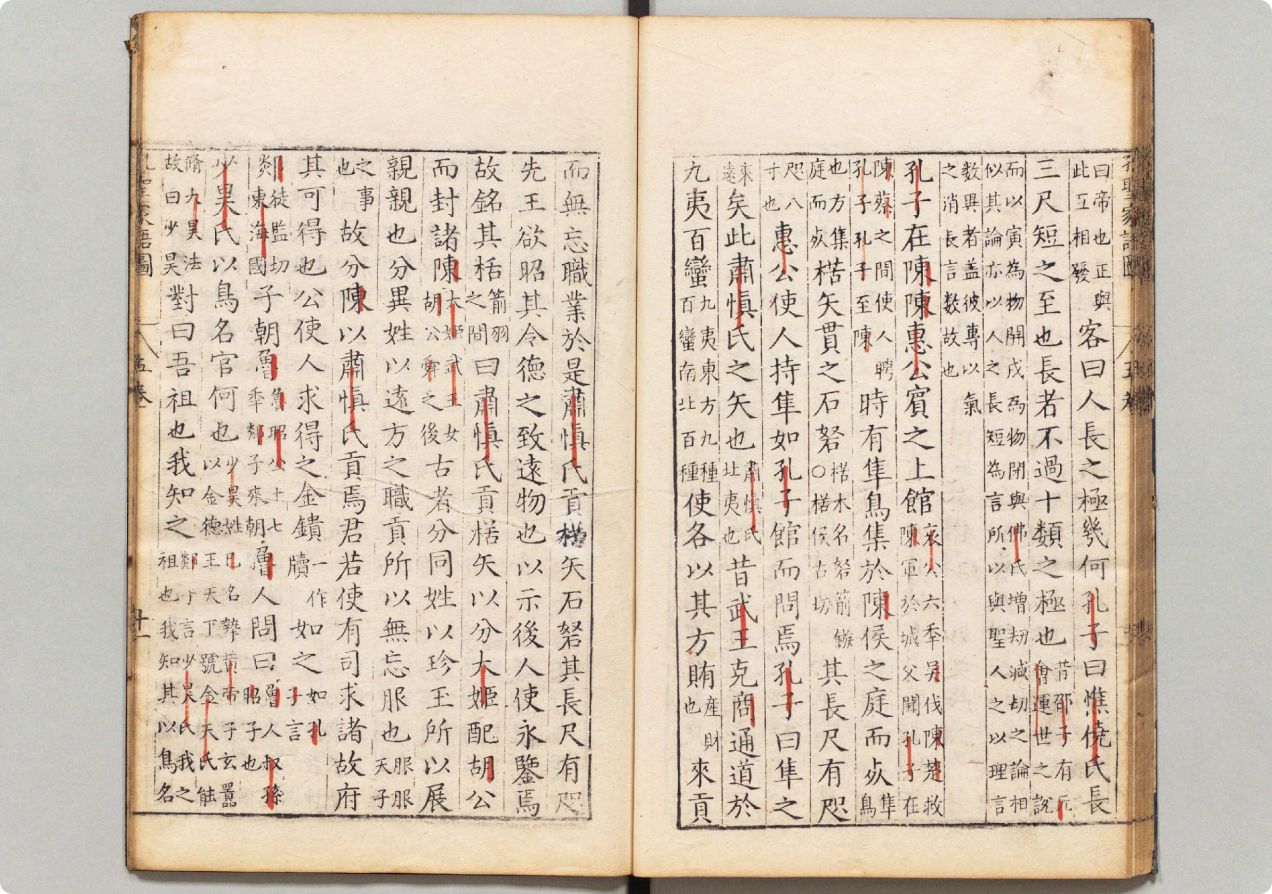 孔聖家語圖 五卷
曰帝也正與此互相發客曰人長之極幾何孔子曰憔僥氏長
三尺短之至也長者不過十類之極也昔邵子有元會運世之說
而以寅為物開戌為物閉與佛氏增劫減劫之論相似其論亦以人之長短為言所以與聖人之以理言
數異者蓋彼專以氣之消長言數故也
孔子在陳陳惠公賓之上館哀公六年吳伐陳楚救陳軍於城父聞孔子在
陳蔡之間使人聘孔子孔子至陳時有隼鳥集於陳侯之庭而死隼鳥
也方集庭而死楛矢貫之石砮楛木名砮箭鏃○楛侯古切其長尺有咫
咫八寸也惠公使人持隼如孔子館而問焉孔子曰隼之
來遠矣此肅慎氏之矢也肅慎氏北夷也昔武王克商通道於
九夷百蠻九夷東方九種百蠻南北百種使各以其方賄產財也來貢
而無忘職業於是肅慎氏貢楛矢石砮其長尺有咫
先王欲昭其令德之致遠物也以示後人使永鑒焉
故銘其栝箭羽之間曰肅慎氏貢楛矢以分大姬配胡公
而封諸陳大姬武王女胡公舜之後古者分同姓以珍玉所以展
親親也分異姓以遠方之職貢所以無忘服也服服天子
之事也故分陳以肅慎氏貢焉君若使有司求諸故府
其可得也公使人求得之金鐀一作牘如之如孔子言
郯徒監切炎東海國子朝魯魯昭公十七季郯子來朝魯人問曰魯人叔孫昭子也
少昊氏以鳥名官何也少昊姓己名摯黃帝子玄囂以金德王天下號金天氏能
脩九昊法故曰少昊對曰吾祖也我知之郯子言少昊氏我之祖也我知其以鳥名
孔聖家語圖 五卷 十一